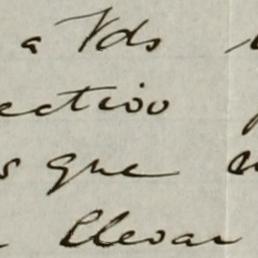 a Vds
ectivo
s que
llevar